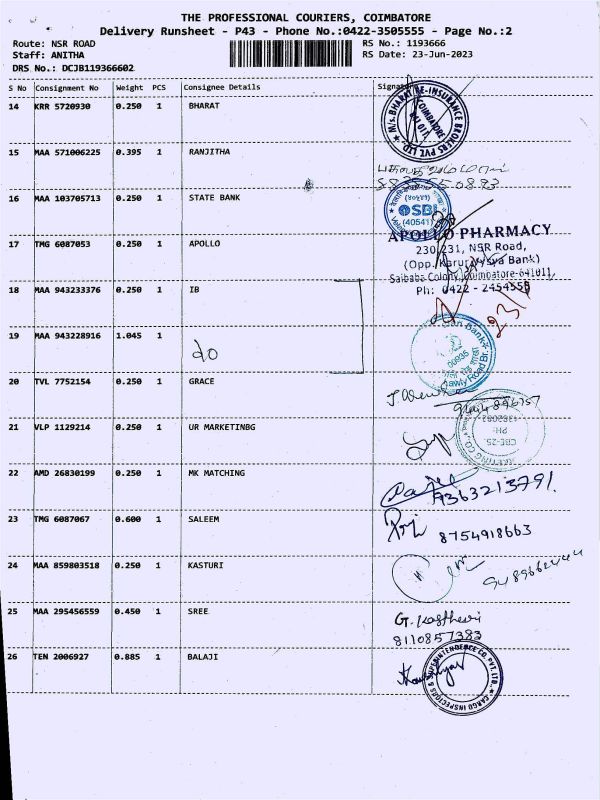 THE PROFESSIONAL COURIERS, COIMBATORE
Delivery Runsheet - P43 - Phone No.:0422-3505555 - Page No.:2
Route: NSR ROAD RS No.: 1193666
Staff: ANITHA RS Date: 23-Jun-2023
DRS No.: DCJB119366602
S No Consignment No Weight PCS Consignee Details Signature
14 KRR 5720930 0.250 1 BHARAT
M/s. BHARAT RE-INSURANCE BROKERS PVT LTD
COIMBATORE
641 011
15 MAA 571006225 0.395 1 RANJITHA
16 MAA 103705713 0.250 1 STATE BANK
SBI
(40541)
17 TMG 6087053 0.250 1 APOLLO
APOLLO PHARMACY
230,231, NSR Road,
(Opp. Karur Vysya Bank)
Saibaba Colony, Coimbatore-641011.
Ph: 0422 - 2454555
18 MAA 943233376 0.250 1 IB
23/
19 MAA 943228916 1.045 1
do
00935
20 TVL 7752154 0.250 1 GRACE
21 VLP 1129214 0.250 1 UR MARKETINBG
CBE-25.
PH:
22 AMD 26830199 0.250 1 MK MATCHING
9363213791.
23 TMG 6087067 0.600 1 SALEEM
8754918663
24 MAA 859803518 0.250 1 KASTURI
25 MAA 295456559 0.450 1 SREE
G. Kasthuri
8110857383
26 TEN 2006927 0.885 1 BALAJI
CARGO INSPECTORS & SUPERINTENDENCE CO. PVT. LTD.